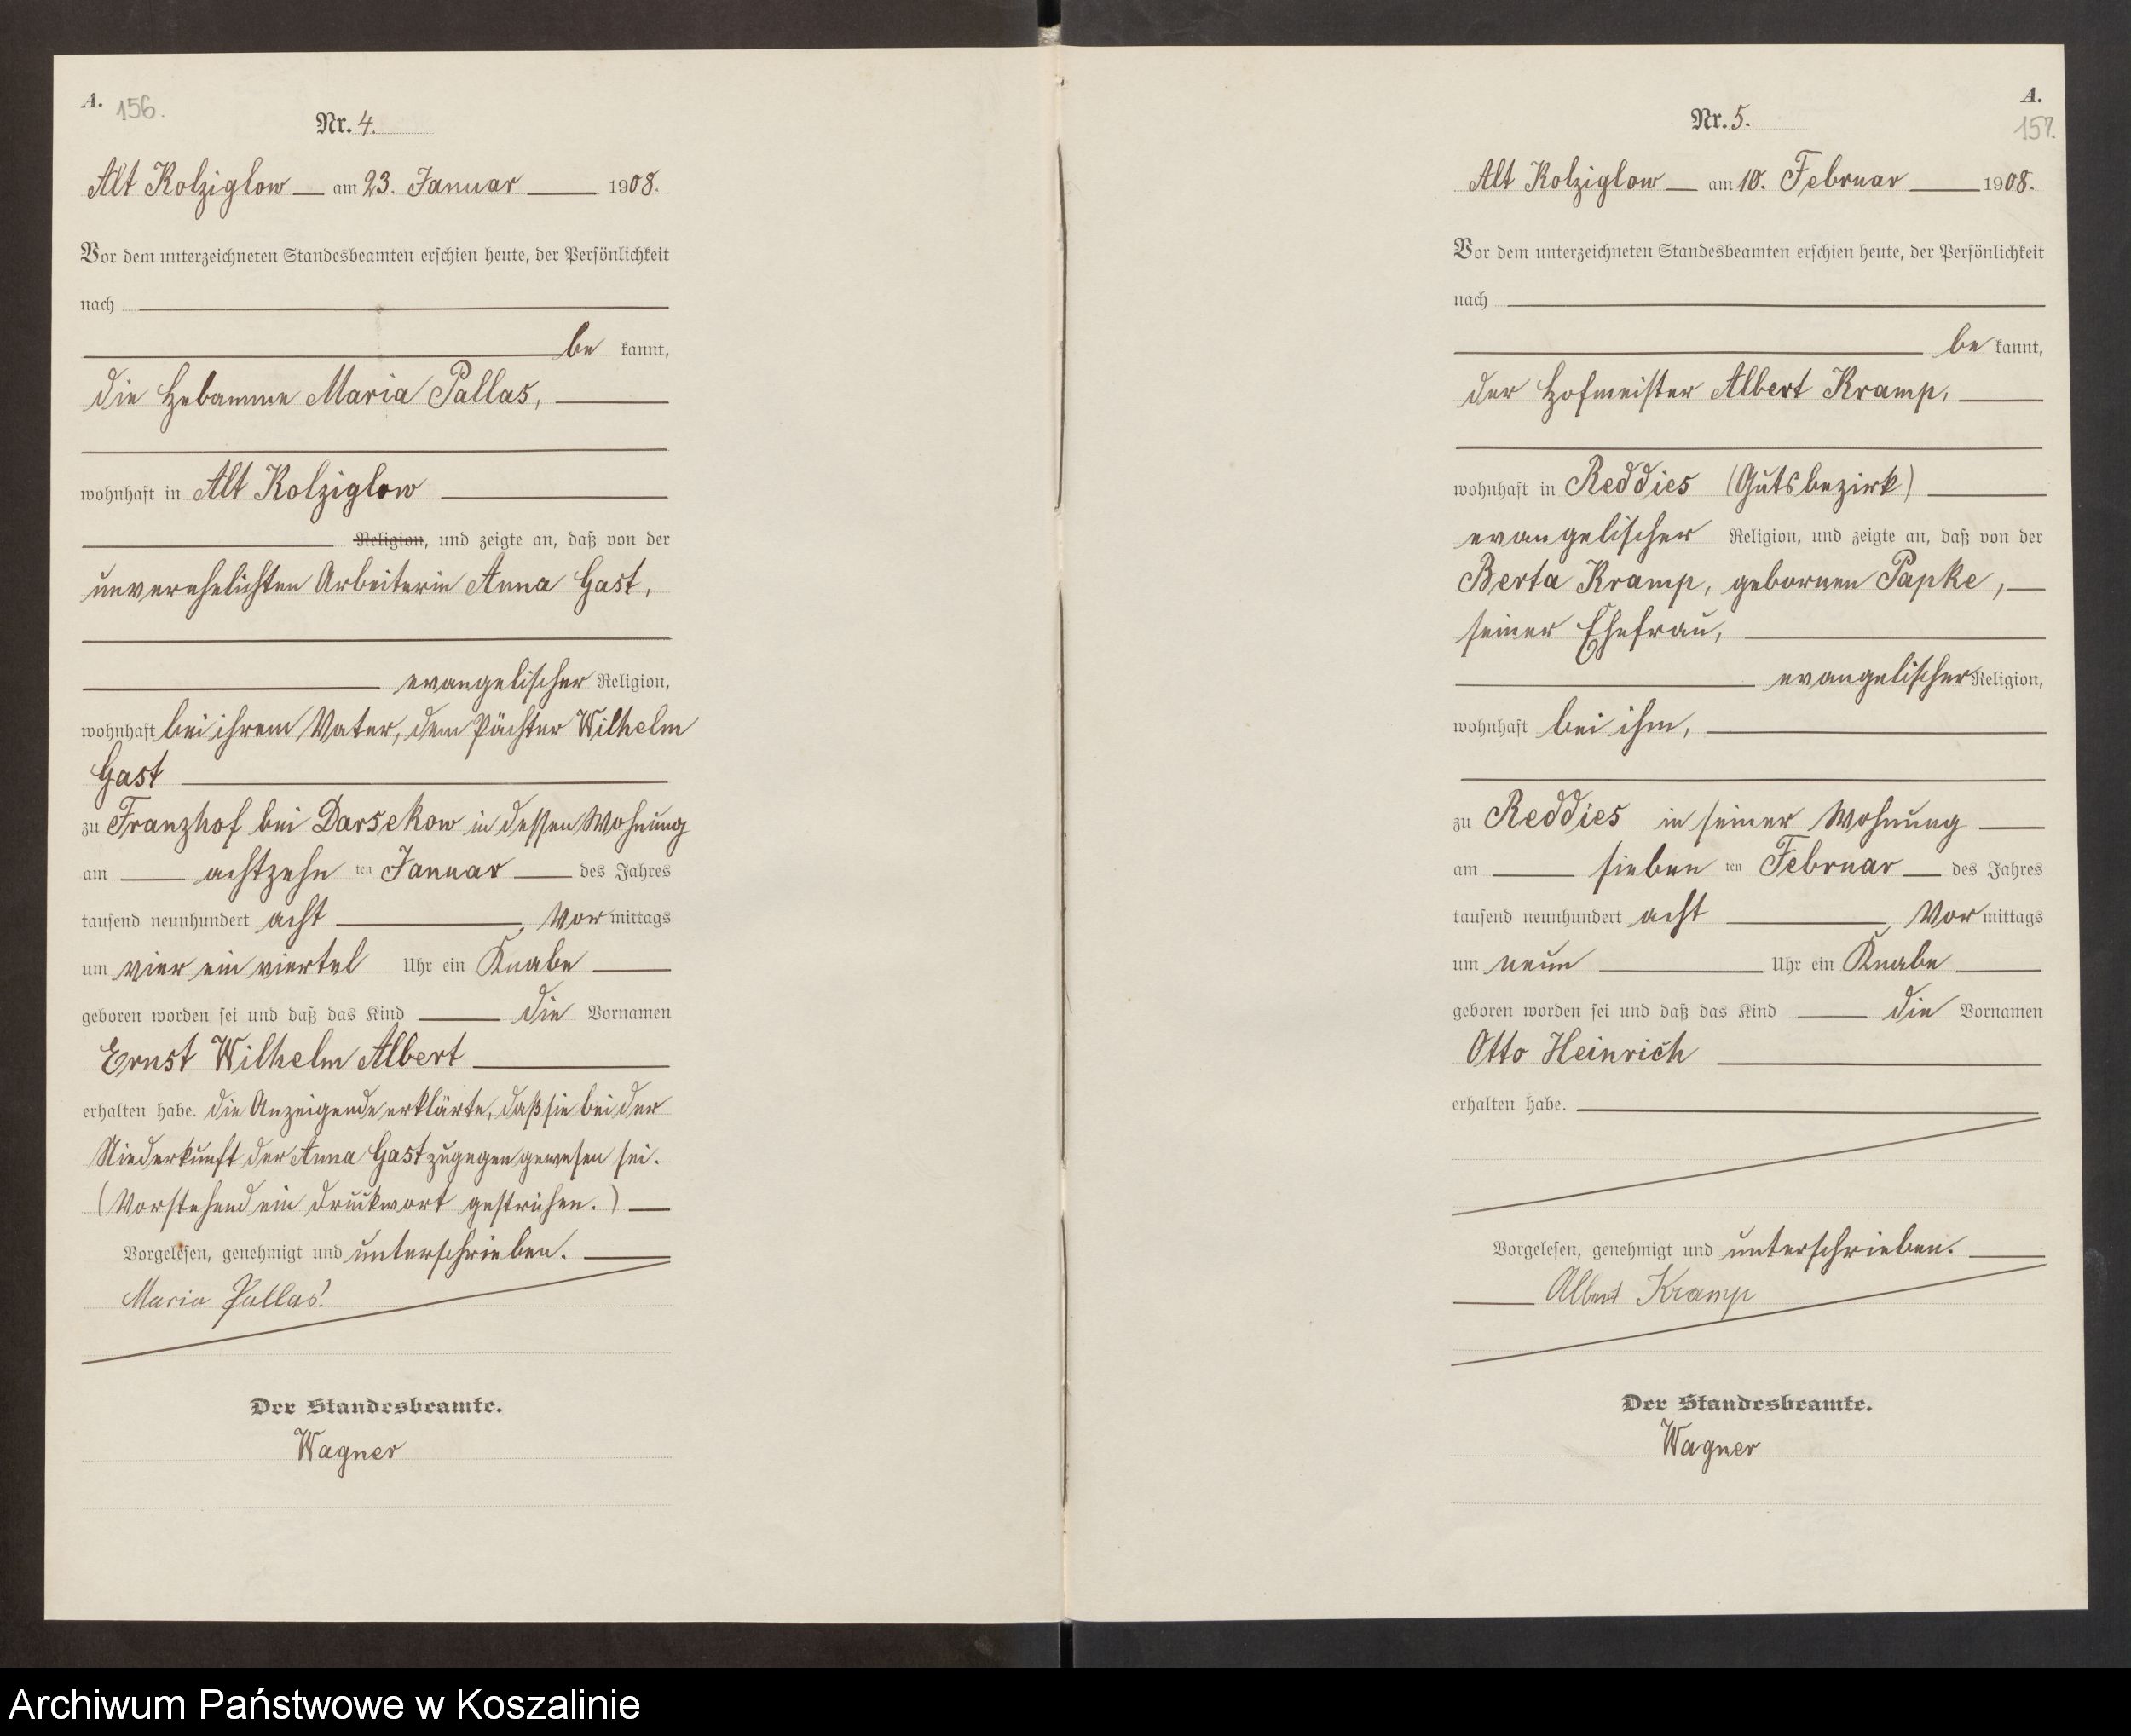 A. 156.
Nr. 4.
Alt Kolziglow am 23. Januar 1908.
Vor dem unterzeichneten Standesbeamten erschien heute, der Persönlichkeit
nach
be kannt,
die Hebamme Maria Pallas,
wohnhaft in Alt Kolziglow
Religion, und zeigte an, daß von der
unverehelichten Arbeiterin Anna Gast,
evangelischer Religion,
wohnhaft bei ihrem Vater, dem Pächter Wilhelm
Gast
zu Franzhof bei Darsekow in dessen Wohnung
am achtzehn ten Januar des Jahres
tausend neunhundert acht, Vor mittags
um vier ein viertel Uhr ein Knabe
geboren worden sei und daß das Kind die Vornamen
Ernst Wilhelm Albert
erhalten habe. die Anzeigende erklärte, daß sie bei der
Niederkunft der Anna Gast zugegen gewesen sei.
(Vorstehend ein Druckwort gestrichen.)
Vorgelesen, genehmigt und unterschrieben.
Maria Pallas.
Der Standesbeamte.
Wagner
A.
157.
Nr. 5.
Alt Kolziglow am 10. Februar 1908.
Vor dem unterzeichneten Standesbeamten erschien heute, der Persönlichkeit
nach
be kannt,
der Hofmeister Albert Kramp,
wohnhaft in Reddies (Gutsbezirk)
evangelischer Religion, und zeigte an, daß von der
Berta Kramp, gebornen Papke,
seiner Ehefrau,
evangelischer Religion,
wohnhaft bei ihm,
zu Reddies in seiner Wohnung
am sieben ten Februar des Jahres
tausend neunhundert acht, Vor mittags
um neun Uhr ein Knabe
geboren worden sei und daß das Kind die Vornamen
Otto Heinrich
erhalten habe.
Vorgelesen, genehmigt und unterschrieben.
Albert Kramp
Der Standesbeamte.
Wagner
Archiwum Państwowe w Koszalinie